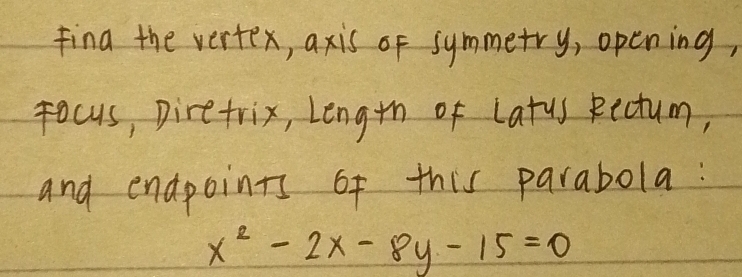 Find the vertex, axis of symmetry, opening,
Focus, Diretrix, Length of Latus Rectum,
and endpoints of this parabola:
x² - 2x - 8y - 15 = 0